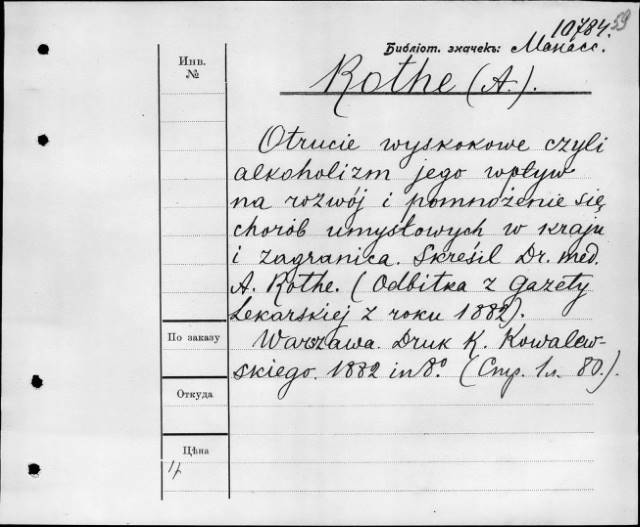 10784. 59
Библіот. значекъ: Манасс.
Инв.
№
Rothe (A.).
Otrucie wyskokowe czyli
alkoholizm jego wpływ
na rozwój i pomnożenie się
chorób umysłowych w kraju
i zagranica. Skreślil Dr. med.
A. Rothe. (Odbitka z Gazety
Lekarskiej z roku 1882).
По заказу
Warszawa. Druk K. Kowalew-
skiego. 1882 in 8º. (Стр. 1л. 80.).
Откуда
Цѣна